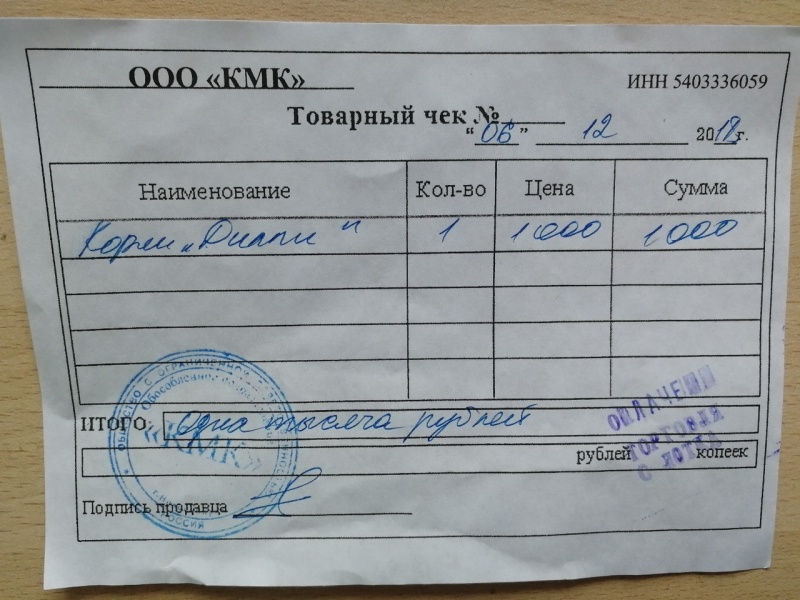 ООО «КМК»
ИНН 5403336059
Товарный чек №
"06" 12 2018г.
Наименование Кол-во Цена Сумма
Корм „Дилли" 1 1000 1000
ИТОГО Одна тысяча рублей
рублей копеек
Подпись продавца
ОБЩЕСТВО С ОГРАНИЧЕННОЙ
Обособленное
«КМК»
РОССИЯ
ОПЛАЧЕНО
ТОРГОВЛЯ
С ЛОТКА